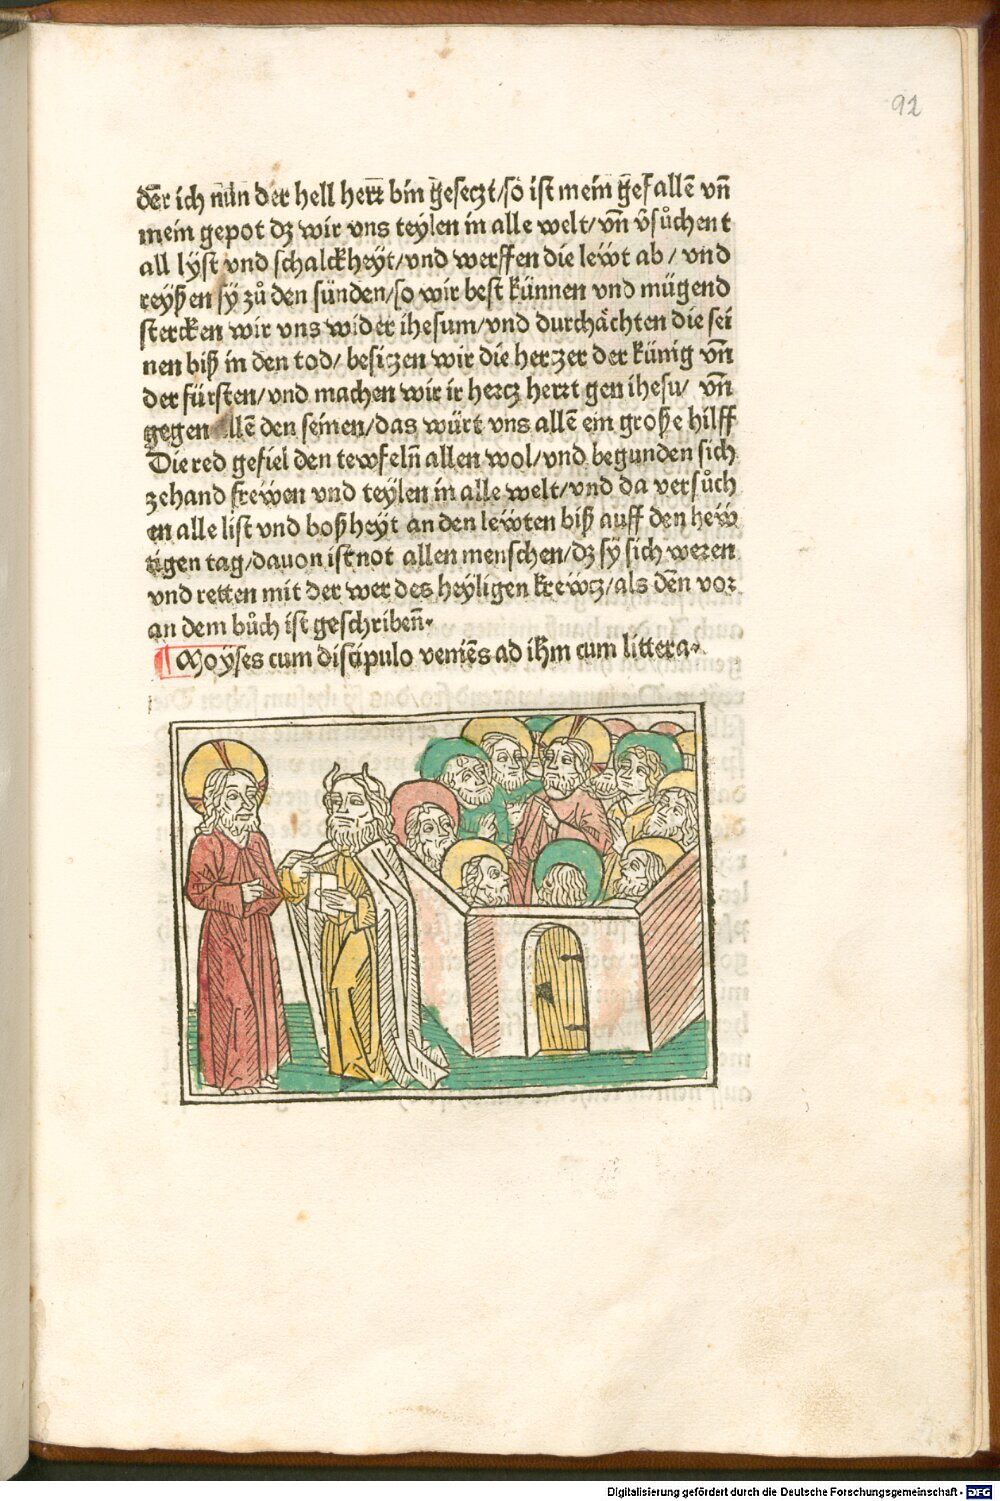 92
der ich nun der hell herꝛ bin gesetzt/so ist mein gefallē vn̄
mein gepot dz wir vns teylen in alle welt/vn̄ v̄sůchent
all lyst vnd schalckheyt/vnd werffen die lewt ab/ vnd
reyßen sy zů den sünden/so wir best künnen vnd mügend
stercken wir vns wider ihesum/vnd durchächten die sei
nen biß in den tod/ besitzen wir die hertzer der künig vn̄
der fürsten/vnd machen wir ir hertz herrt gen ihesu/ vn̄
gegen allē den seinen/das würt vns allē ein große hilff
Die red gefiel den tewfeln̄ allen wol/vnd begunden sich
zehand frewen vnd teylen in alle welt/vnd da versůch
en alle list vnd boßheyt an den lewten biß auff den hew
tigen tag/dauon ist not allen menschen/dz sy sich weren
vnd retten mit der wer des heyligen krewtz/als dēn vor
an dem bůch ist geschriben̄.
Moyses cum discipulo veniēs ad ihm cum littera.
Digitalisierung gefördert durch die Deutsche Forschungsgemeinschaft - DFG